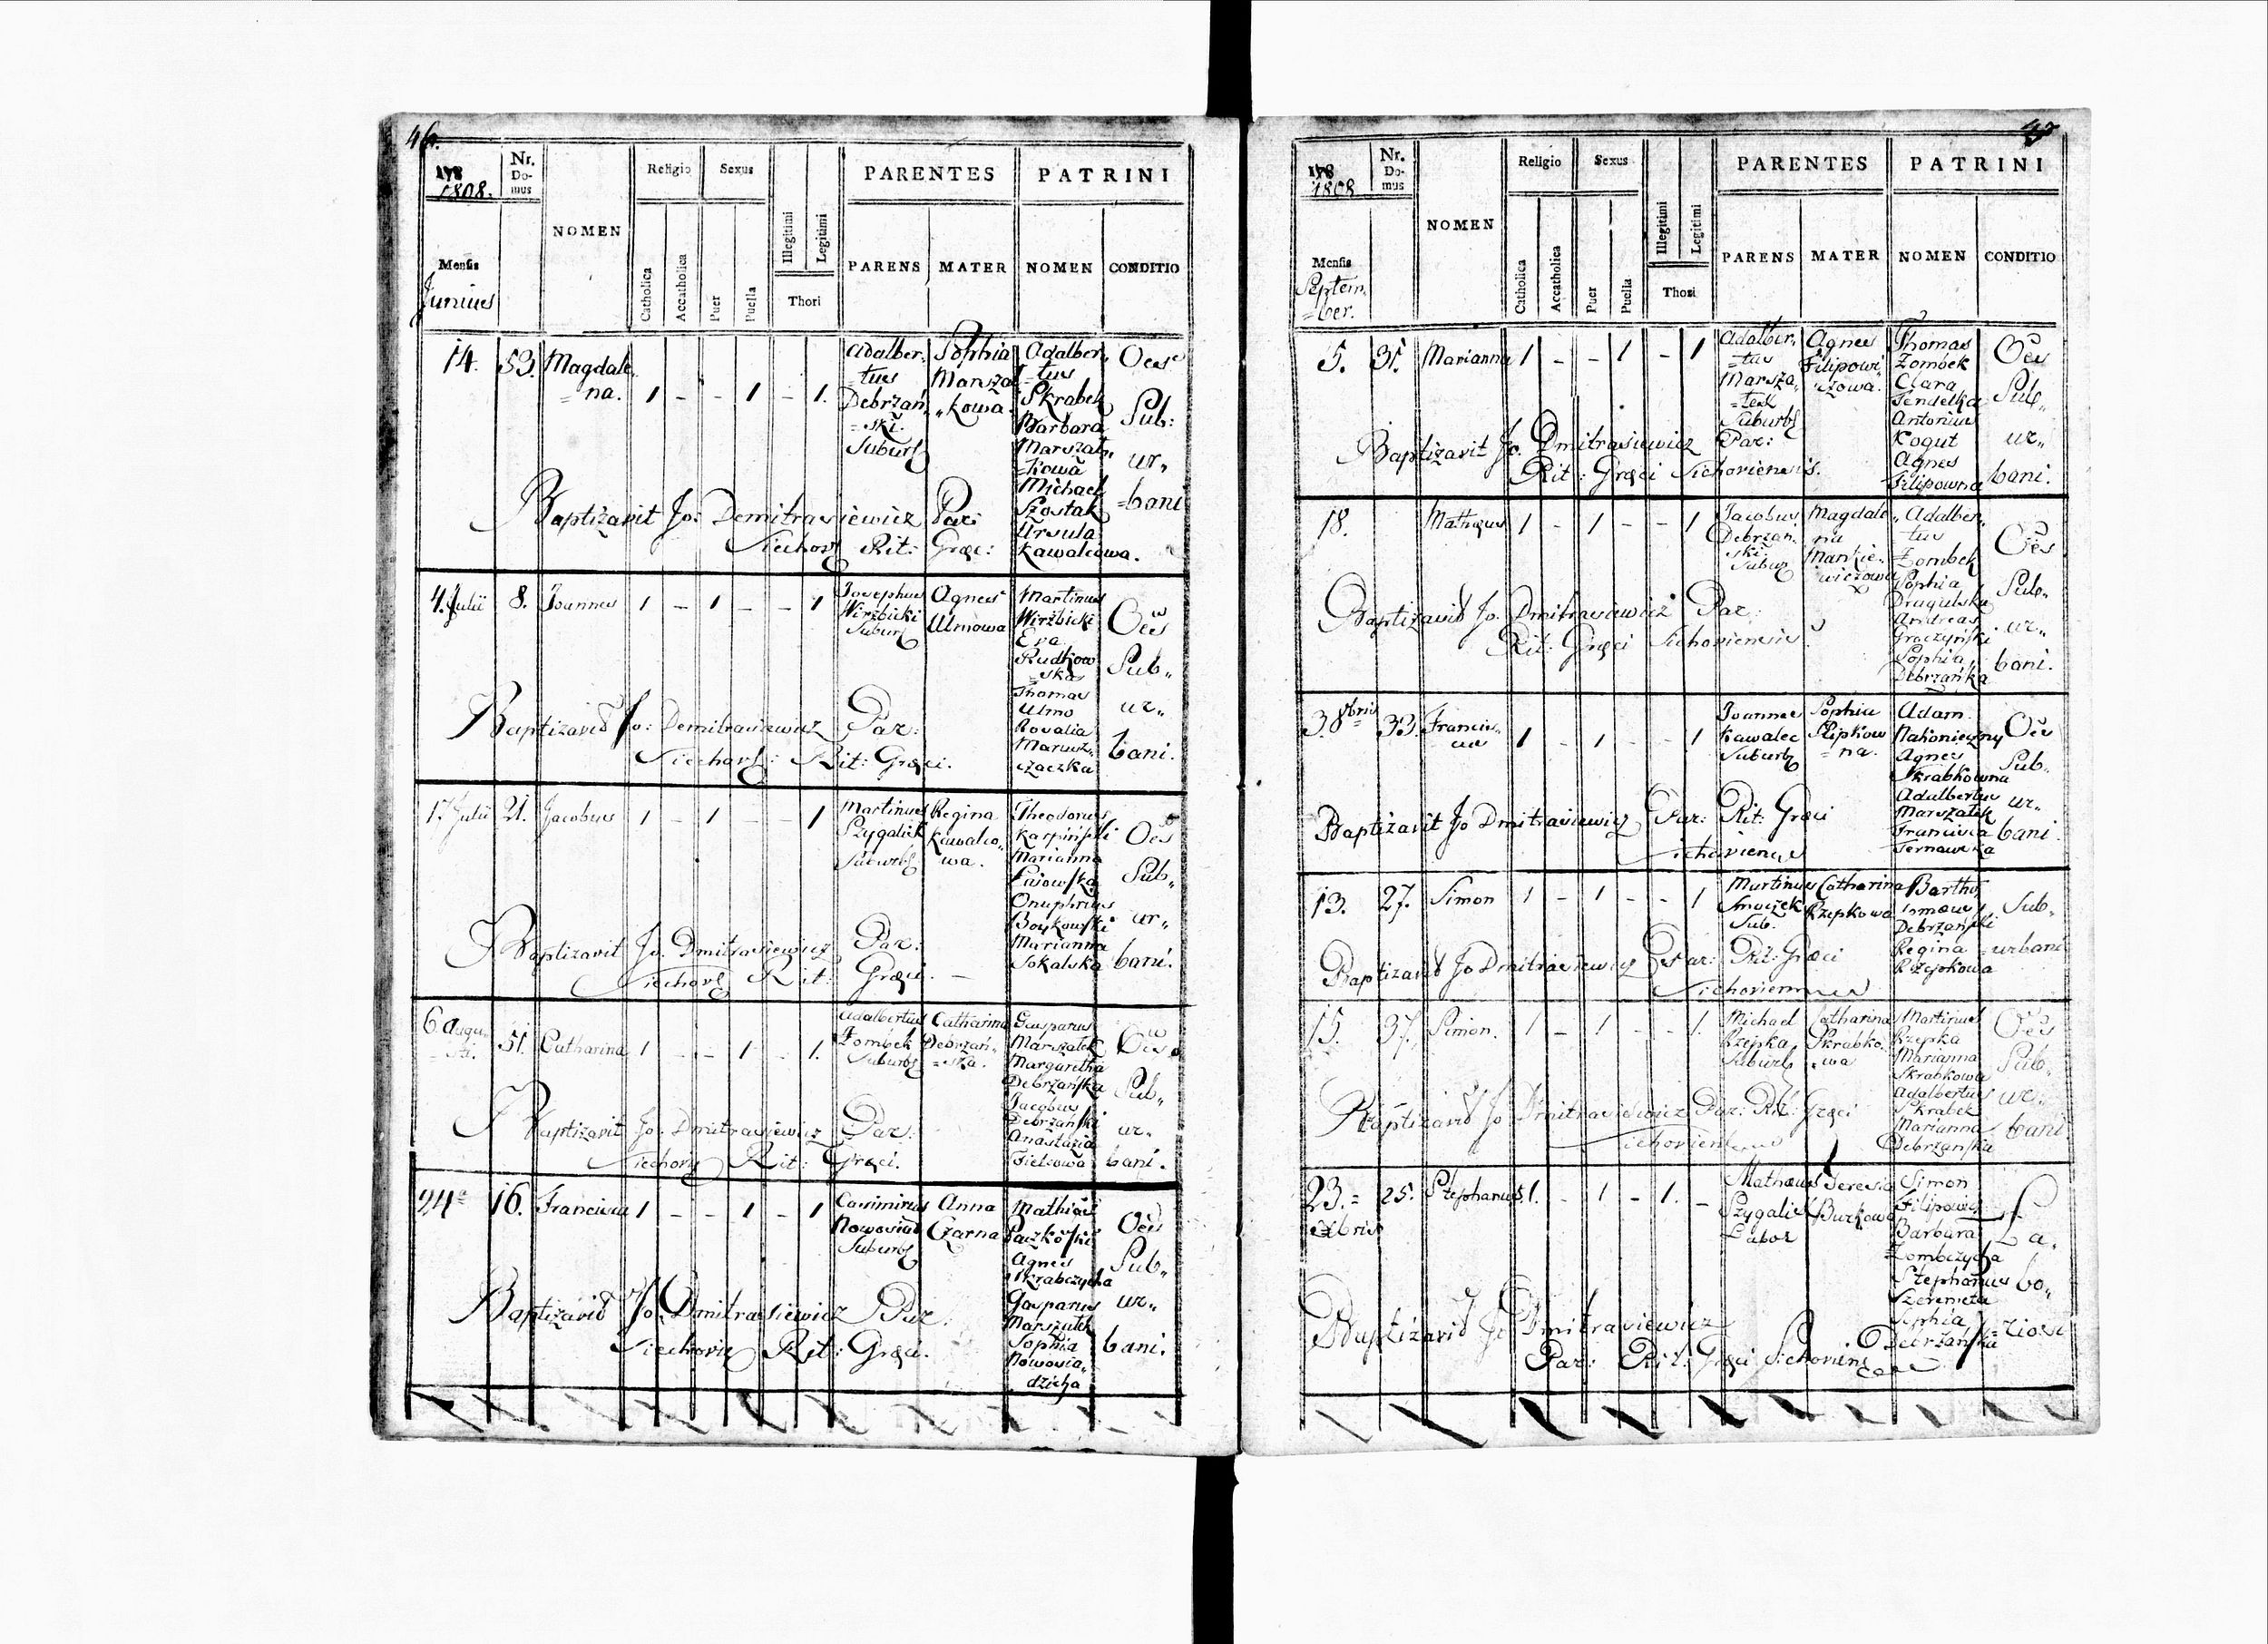 46.
1808.
Nr. Do- mus
NOMEN
Religio
Sexus
PARENTES
PATRINI
Mensis
Junius
Catholica
Accatholica
Puer
Puella
Illegitimi
Legitimi
Thori
PARENS
MATER
NOMEN
CONDITIO
14. 53. Magdale
= na. 1 - - 1 - 1.
Adalber
=tus
Debrzań
=ski.
Suburb
Sophia
Marszał
kowa.
Adalber
=tus
Skrabek
Barbara
Marszał
=kowa
Michael
Szostak
Ursula
Kawalcowa.
Oes
Sub:
ur„
=bani
Baptizavit Jo: Demitrasiewicz Par:
Siechov Rit: Græc:
4. Julii 8. Joannes 1 - 1 - - 1
Josephus
Wirzbicki
Suburb
Agnes
Ulmowa
Martinus
Wirzbicki
Eva
Rudkow
=ska
Thomas
Ulmo
Rosalia
Marusz
czaczka
Oes
Sub„
ur„
bani.
Baptizavit Jo: Demitrasiewicz Par:
Siechov: Rit: Græci.
17. Julii 21. Jacobus 1 - 1 - - 1
Martinus
Szygalik
Suburb
Regina
Kawalco„
wa.
Theodorus
Karpiński
Marianna
Onuphrius
Boykowski
Marianna
Sokalska
Oes
Sub„
ur„
bani.
Baptizavit Jo. Dmitrasiewicz Par:
Siechov Rit: Græci. —
6 Augu
sti. 51. Catharina 1 - - 1 - 1.
Adalbertus
Zombek
Suburb
Catharina
Debrzań
=ska.
Gasparus
Marszałek
Margaretha
Debrzańska
Jacobus
Debrzański
Anastazia
Oes
Sub„
ur„
bani.
Baptizavit Jo: Dmitrasiewicz Par:
Siechov Rit: Græci.
24 16. Francisca 1 - - 1 - 1
Casimirus
Nowosiad
Suburb
Anna
Czarna
Mathias
Paczkoski
Agnes
Skrabczycha
Gasparus
Marszałek
Sophia
Nowosia„
dzicha
Oes
Sub„
ur„
bani.
Baptizavit Jo. Dmitrasiewicz Par:
Siechov Rit: Græci.
47
1808
Nr. Do- mus
NOMEN
Religio
Sexus
PARENTES
PATRINI
Mensis
Septem
=ber.
Catholica
Accatholica
Puer
Puella
Illegitimi
Legitimi
Thori
PARENS
MATER
NOMEN
CONDITIO
5. 31. Marianna 1 - - 1 - 1
Adalber
=tus
Marsza
=łek
Suburb
Agnes
Filipowi
czowa.
Thomas
Zombek
Clara
Fendelka
Antonius
Kogut
Agnes
Filipowna
Oes
Sub„
ur„
bani.
Baptizavit Jo. Dmitrasiewicz Par:
Rit: Græci Sichoviensis.
18. Mathæus 1 - 1 - - 1
Jacobus
Debrzań
ski
Subur
Magdale
na
Mankie
wiczowa
Adalber
tus
Zombek
Sophia
Drugulska
Andreas
Groczyński
Sophia
Debrzańka
Oes
Sub„
ur„
bani.
Baptizavit Jo. Dmitrasiewicz Par:
Rit: Græci Sichoviensis
3. 8bris 33. Francis
cus 1 - 1 - - 1
Joannes
Kawalec
Suburb
Sophia
Rzepkow
=na.
Adam
Nakonieczny
Agnes
Skrabkowna
Adalbertus
Marszałek
Francisca
Oes
Sub„
ur„
bani.
Baptizavit Jo Dmitrasiewicz Par: Rit: Græci
Sichoviensis
13. 27. Simon 1 - 1 - - 1
Martinus
Smaczek
Sub.
Catharina
Rzepkowa
Bartho
lomæus
Debrzański
Regina
Rzepkowa
Sub„
=urbani
Baptizavit Jo Dmitrasiewicz Par: Rit: Græci
Sichoviensis
15. 37. Simon. 1 - 1 - - 1.
Michael
Rzepka
Suburb
Catharina
Skrabko
wa
Martinus
Rzepka
Marianna
Skrabkowa
Adalbertus
Skrabek
Marianna
Debrzańska
Oes
Sub„
ur„
bani
Baptizavit Jo Dmitrasiewicz Par: Rit: Græci
Sichoviensis
23. = 25. Stephanus 1. - 1 - 1. -
Xbris
Mathæus
Szygalik
Labor
Teresia
Burkowa
Simon
Filipowicz
Barbara
Zombczycha
Stephanus
Szeremeta
Sophia
Debrzańska
La„
bo„
=riosi
Baptizavit Jo Dmitrasiewicz
Par: Rit: Græci Sichovien